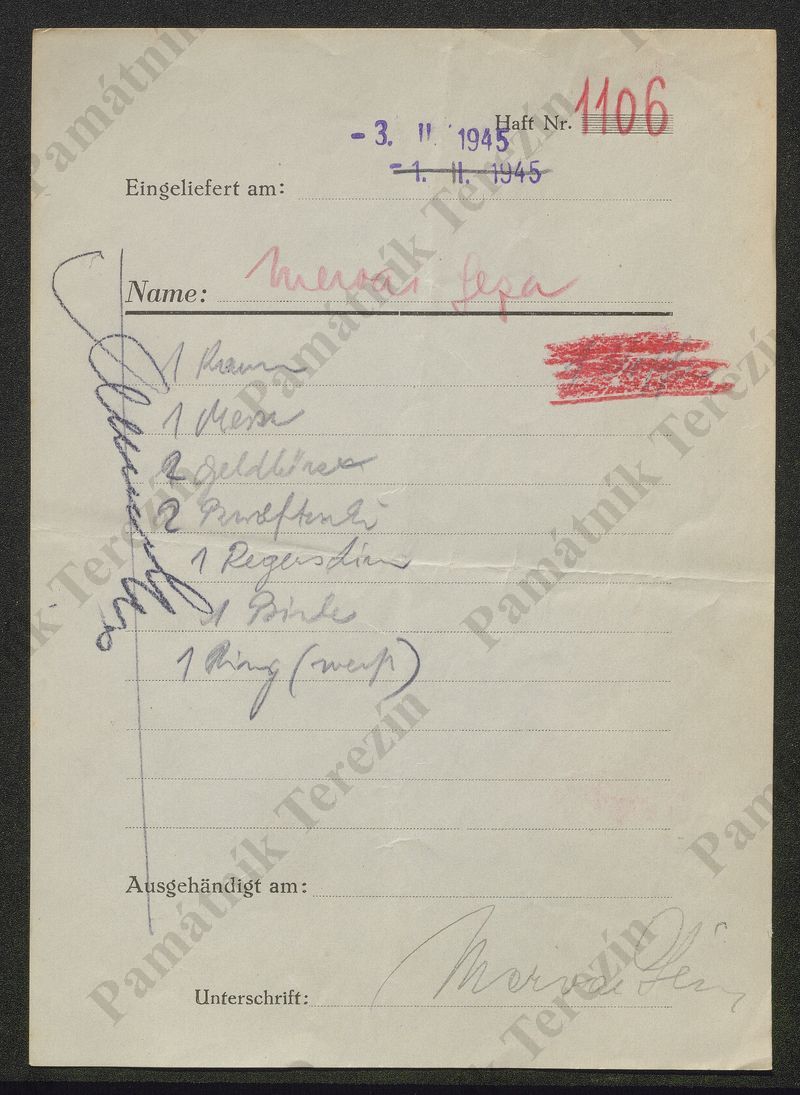 Haft Nr. 1106
- 3. II 1945
- 1. II. 1945
Eingeliefert am:
Name: Mervai Geza
1 Kamm
1 Messer
2 Geldbörse
2
1 Regenschirm
1 Binde
1 Ring (weiß)
Ausgehändigt am:
Unterschrift: Mervai
Památník Terezín